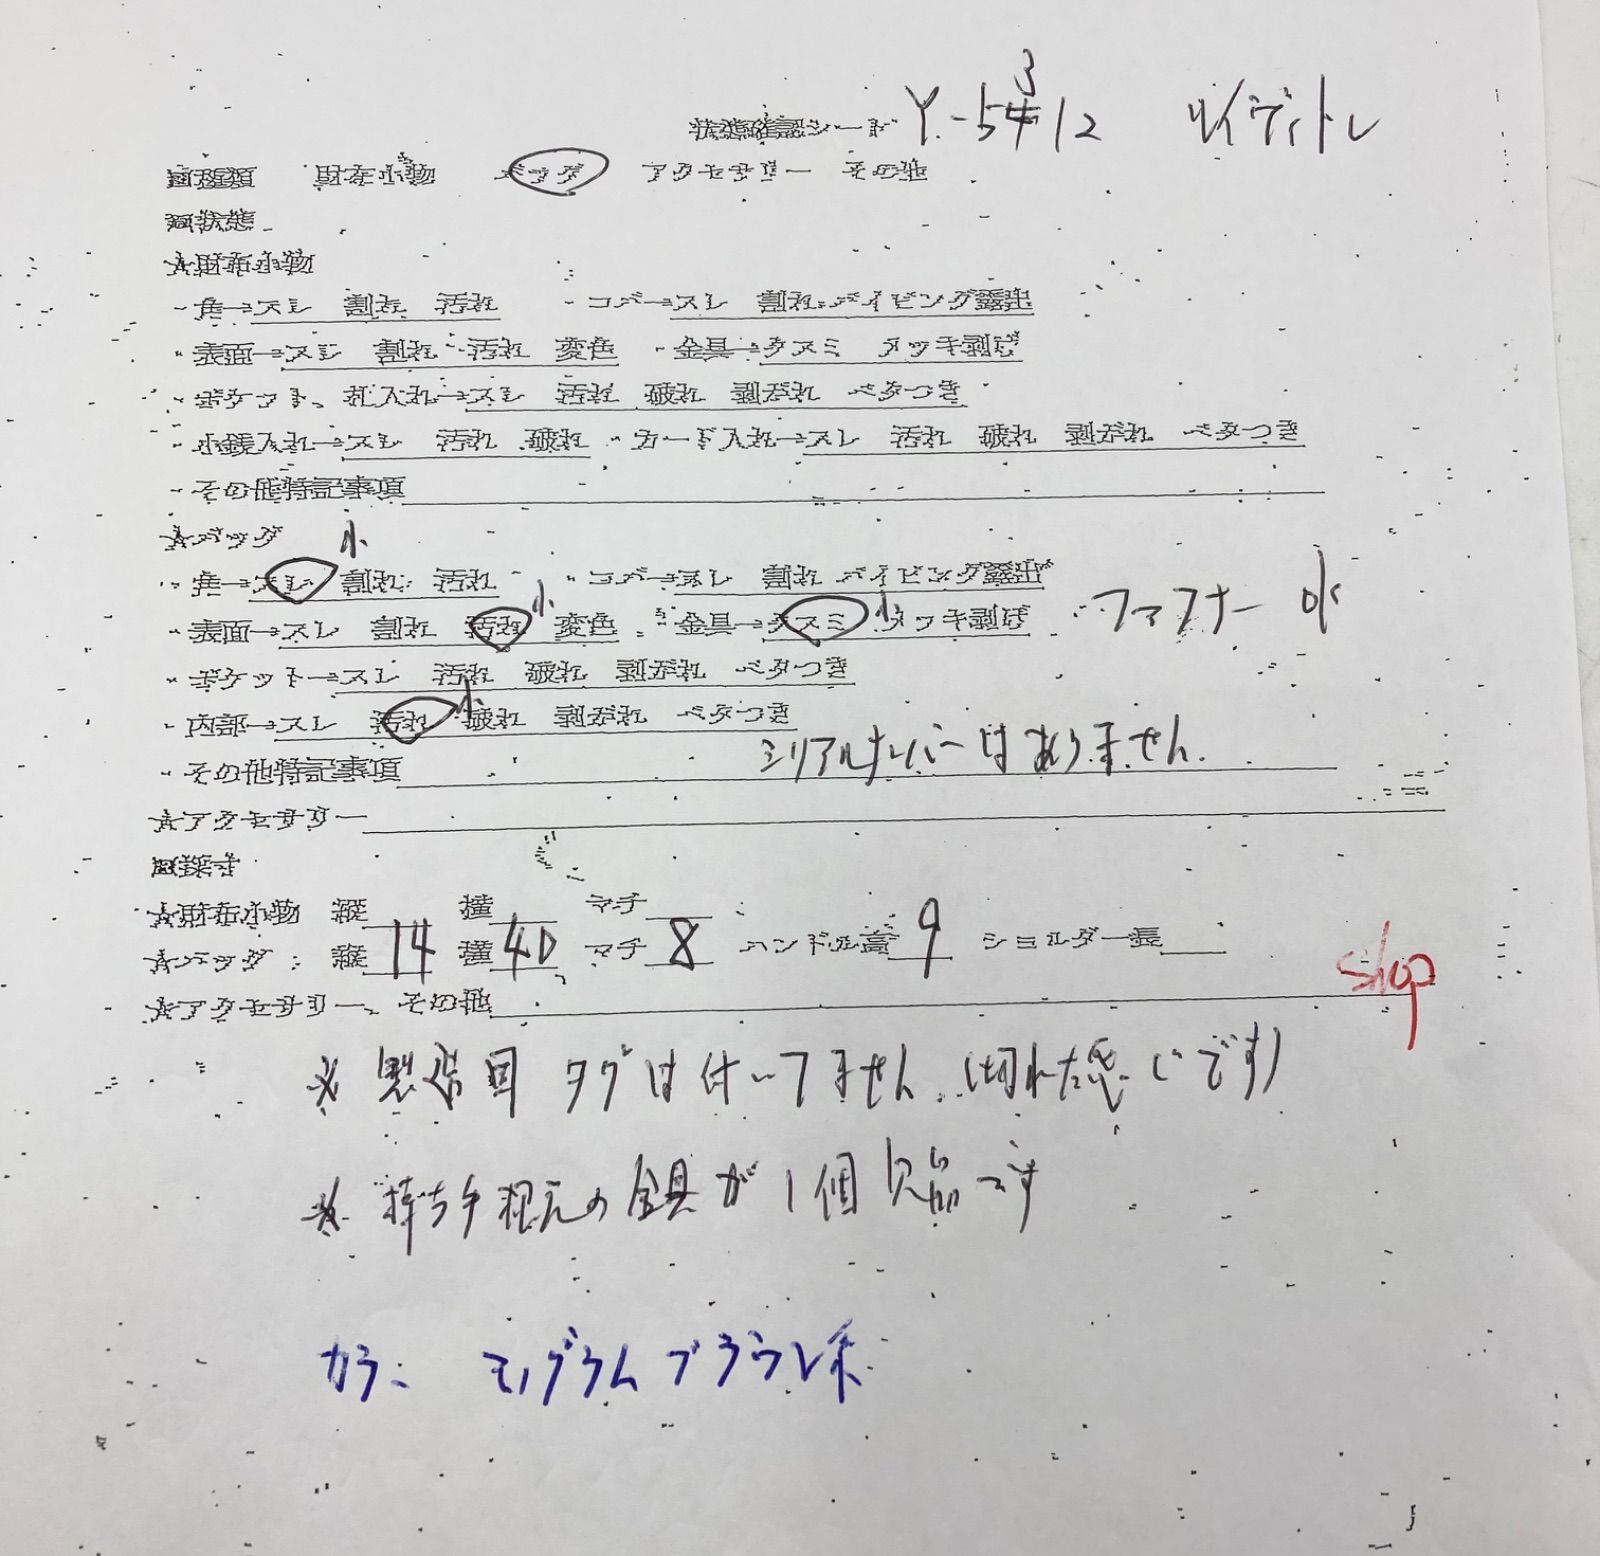 状態確認シート Y-5312 ルイヴィトン
□種類 財布小物 バッグ アクセサリー その他
□状態
★財布小物
・角→スレ 割れ 汚れ ・コバ→スレ 割れ パイピング露出
・表面→スレ 割れ 汚れ 変色 ・金具→クスミ メッキ剥げ
・ポケット、札入れ→スレ 汚れ 破れ 剥がれ ベタつき
・小銭入れ→スレ 汚れ 破れ ・カード入れ→スレ 汚れ 破れ 剥がれ ベタつき
・その他特記事項
★バッグ 小
・角→スレ 割れ 汚れ ・コバ→スレ 割れ パイピング露出
・表面→スレ 割れ 汚れ 小 変色 ・金具→クスミ 小 メッキ剥げ ・ファスナー ok
・ポケット→スレ 汚れ 破れ 剥がれ ベタつき
・内部→スレ 汚れ 小 破れ 剥がれ ベタつき
・その他特記事項 シリアルナンバーはありません.
★アクセサリー
□採寸
★財布小物 縦 横 マチ
★バッグ 縦 14 横 40 マチ 8 ハンドル高 9 ショルダー長
★アクセサリー、その他
shop
※ 製造国 タグは付いてません (切れた感じです)
※ 持ち手根元の金具が1個欠品です
カラー モノグラム ブラウン系